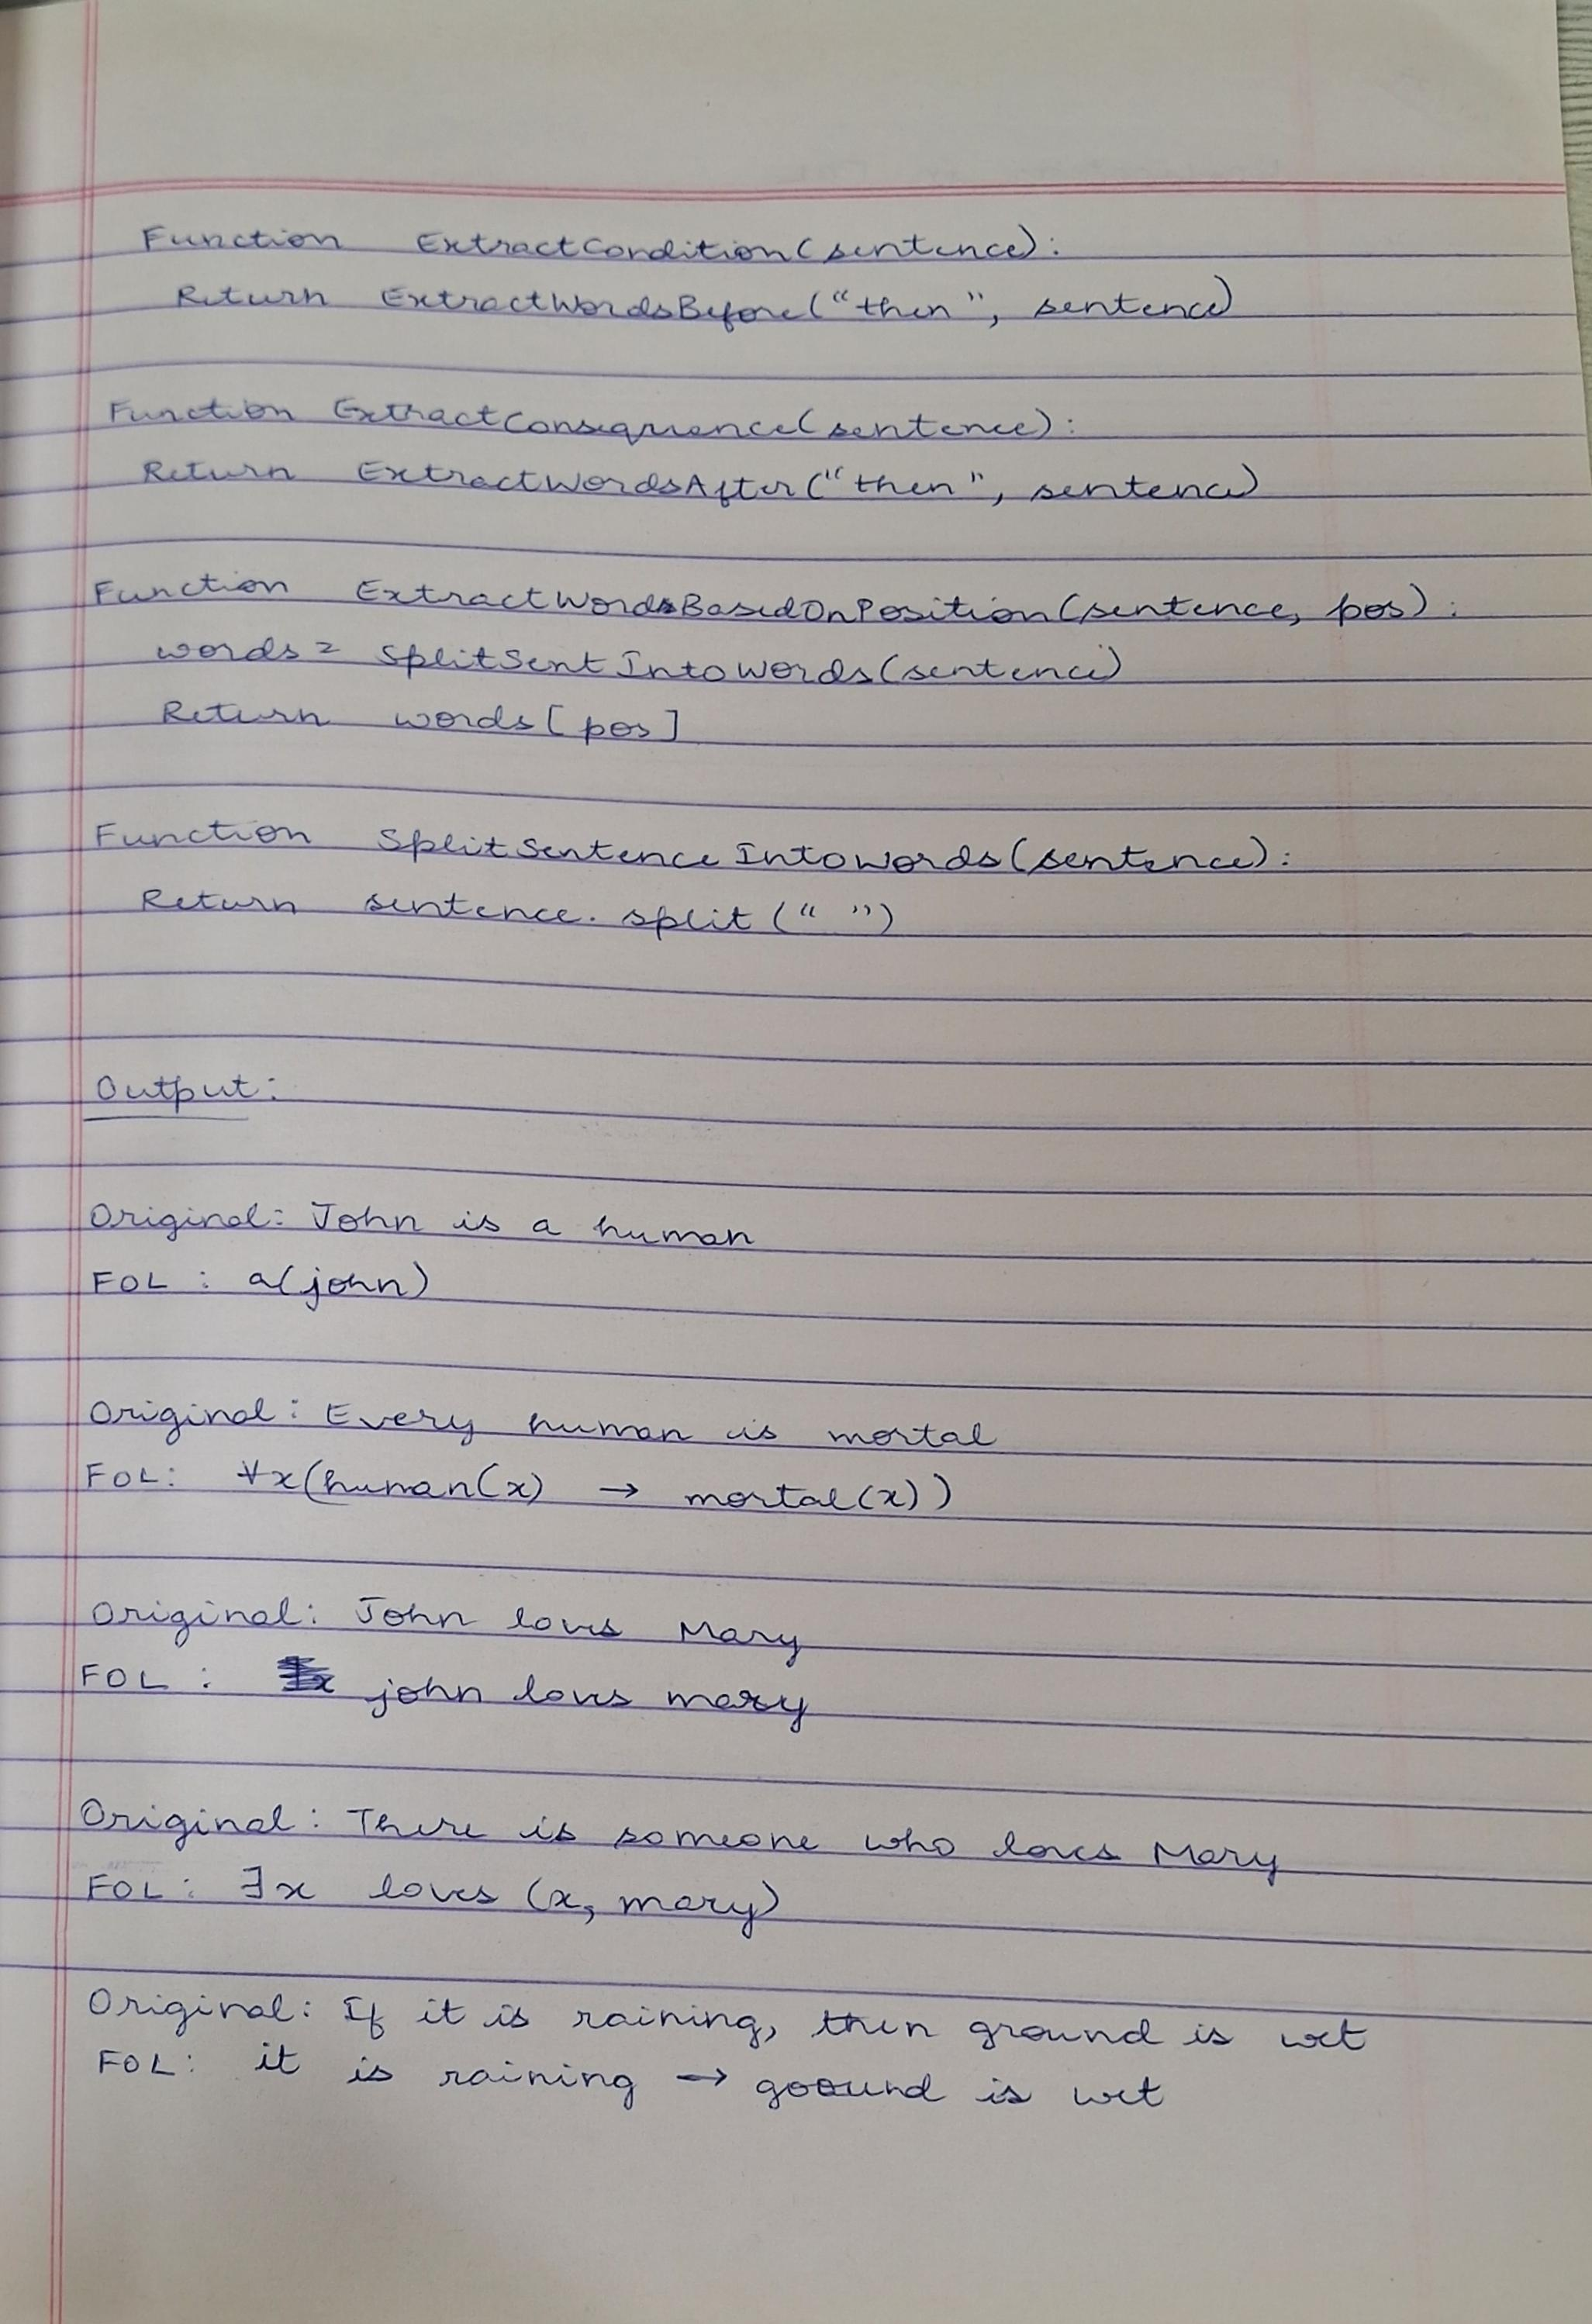 Function ExtractCondition(sentence):
Return ExtractWordsBefore("then", sentence)
Function ExtractConsequence(sentence):
Return ExtractWordsAfter("then", sentence)
Function ExtractWordsBasedOnPosition(sentence, pos):
words = SplitSentIntoWords(sentence)
Return words[pos]
Function SplitSentenceIntoWords(sentence):
Return sentence.split(" ")
Output:
Original: John is a human
FOL : a(john)
Original: Every human is mortal
FOL: ∀x(human(x) → mortal(x))
Original: John loves Mary
FOL : john loves mary
Original: There is someone who loves Mary
FOL: ∃x loves (x, mary)
Original: If it is raining, then ground is wet
FOL: it is raining → goound is wet